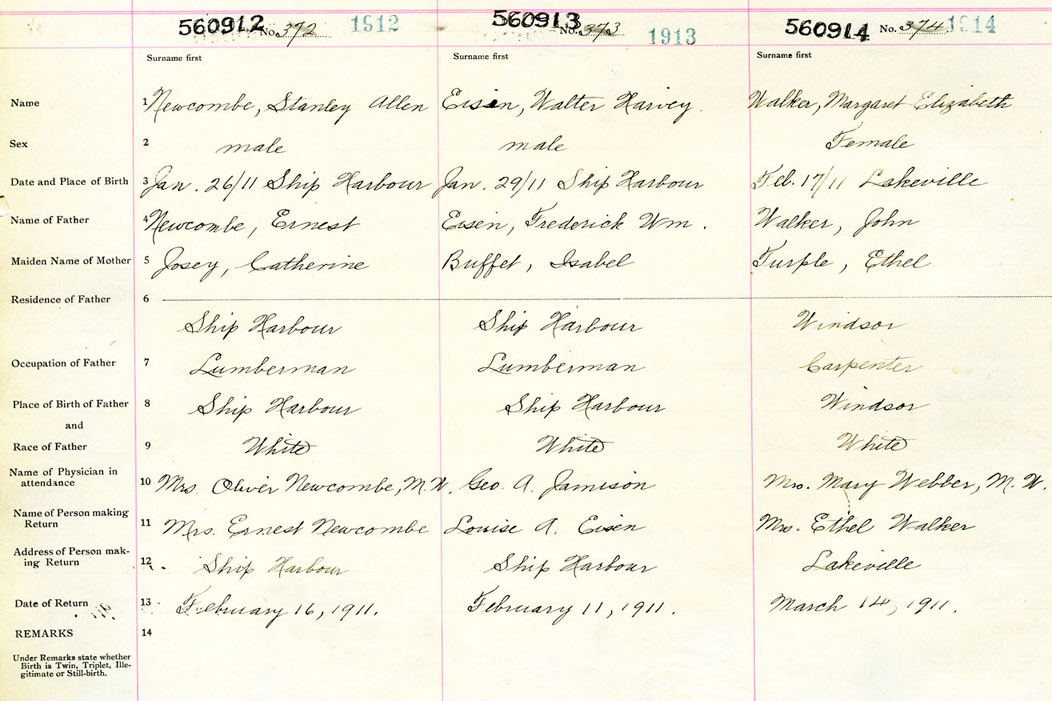 560912 No. 372 1912 560913 No. 373 1913 560914 No. 374 1914
Surname first Surname first Surname first
Name 1 Newcombe, Stanley Allen Eisen, Walter Harvey. Walker, Margaret Elizabeth
Sex 2 male male Female
Date and Place of Birth 3 Jan. 26/11 Ship Harbour Jan. 29/11 Ship Harbour Feb. 17/11 Lakeville
Name of Father 4 Newcombe, Ernest Eisen, Frederick Wm. Walker, John
Maiden Name of Mother 5 Josey, Catherine Buffet, Isabel Turple, Ethel
Residence of Father 6
Ship Harbour Ship Harbour Windsor
Occupation of Father 7 Lumberman Lumberman Carpenter
Place of Birth of Father 8 Ship Harbour Ship Harbour Windsor
and
Race of Father 9 White White White
Name of Physician in
attendance 10 Mrs. Oliver Newcombe, M.W. Geo. A. Jamison Mrs. Mary Webber, M.W.
Name of Person making
Return 11 Mrs. Ernest Newcombe Louise A. Eisen Mrs. Ethel Walker
Address of Person mak-
ing Return 12 Ship Harbour Ship Harbour Lakeville
Date of Return 13 February 16, 1911. February 11, 1911. March 14, 1911.
REMARKS 14
Under Remarks state whether
Birth is Twin, Triplet, Ille-
gitimate or Still-birth.